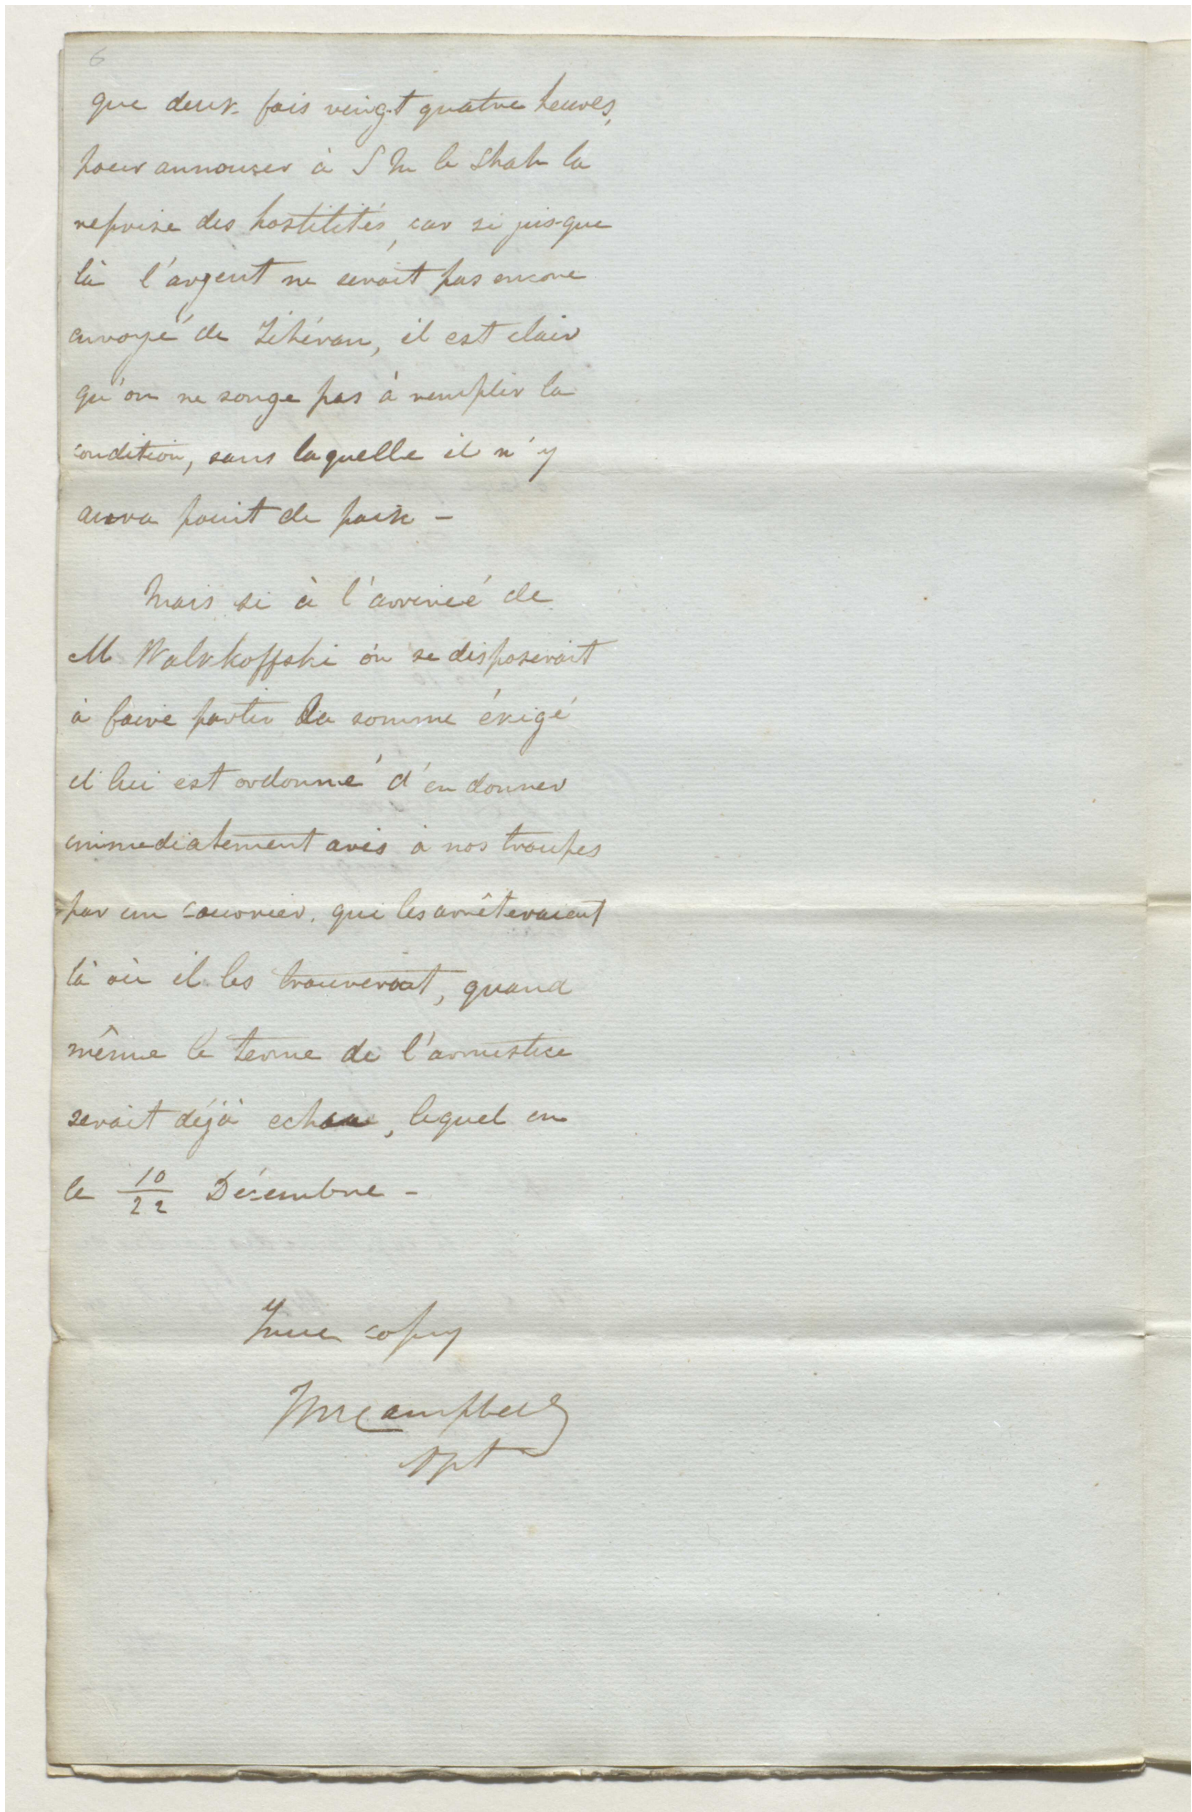 6
que deux fois vingt quatre heures,
pour annonser à S M le Shah la
reprise des hostilités, car si jusque
là l'argent ne serait pas encore
envoyé de Téhéran, il est clair
qu'on ne songe pas à remplir la
condition, sans laquelle il n'y
aura point de paix –
Mais si à l'arriveé de
M Walkhoffski on se disposerait
à faire partir la somme éxigé
il lui est ordonné d'en donner
immediatement avis à nos troupes
par un courrier, qui les arrêteraient
là où il les trouverait, quand
même le terme de l'armistice
serait déjà echu, lequel en
le 10/22 Décembre –
True copy
Campbell